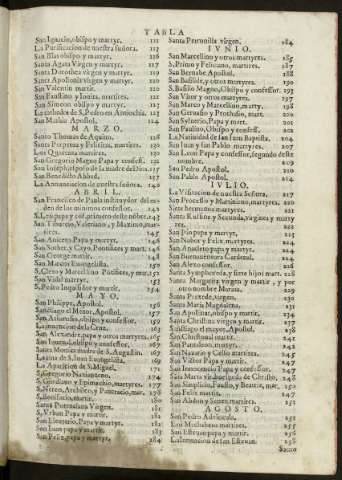 TABLA
San Ignacio, obispo y martyr. 111
La Purificacion de nuestra señora. 113
San Blas obispo y martyr. 116
Santa Agata virgen y martyr. 117
Santa Dorothea virgen y martyr. 119
Santa Apolonia virgen y martyr. 120
San Valentin martir. 120
San Faustino y Jovita, martires. 122
San Simeon obispo y martyr. 123
La cathedra de S. Pedro en Antiochia. 123
San Mathia Apostol. 124
MARZO.
Santo Thomas de Aquino. 128
Santa Perpetua y Felicitas, martires. 130
Los Quarenta martires. 130
San Gregorio Magno Papa y confess.
San Benedicto Abbad.
La Annunciacion de nuestra señora. 142
ABRIL.
San Francisco de Paula instituydor del orden
de los minimos confessor.
San Aniceto Papa y martyr. 146
San Sother, y Cayo, Pontifices y mart.
San George martir. 148
San Marcos Evangelista. 150
San Vidal martyr. 153
S. Pedro Inquisidor y martir. 154
MAYO.
San Philippe, Apostol. 156
Santiago el Menor, Apostol. 157
San Athanasio, obispo y confessor. 159
La invencion de la Cruz. 163
San Alexandre, papa y otros martyres. 165
Santa Monica madre de S. Augustin. 167
La Aparicion de S. Miguel. 171
S. Gregorio Nazianzeno. 174
S. Gordiano y Epimacho, martyres. 177
S. Nereo, Archileo, y Pancracio, mar. 178
S. Bonifacio, martir. 180
Santa Potenciana Virgen. 181
S. Urban Papa y martir. 181
San Eleuterio, Papa y martyr. 182
San Iuan papa y martir. 183
San Felix, papa y martyr. 184
Santa Petronilla virgen. 184
IVNIO.
San Marcellino y otros martyres. 185
S. Primo y Feliciano, martires. 187
San Bernabe Apostol. 188
San Basilide, y otros martires. 190
S. Basilio Magno, Obispo y confessor. 193
San Vito y otros martyres. 197
San Marco y Marcelliano, martyr. 198
San Gervasio y Prothasio, mart. 200
San Sylverio, Papa y mart. 201
San Paulino, Obispo y confess. 201
La Natividad de San Iuan Baptista. 204
San Iuan y san Pablo martyres. 207
San Leon Papa y confessor, segundo deste
nombre. 209
San Pedro Apostol. 210
San Pablo Apostol. 214
IVLIO.
La Visitacion de nuestra Señora. 217
San Processo y Martiniano, martyres. 220
Siete hermanos martyres. 221
Santa Rufina y Secunda, virgines y marty
res. 222
San Pio papa y martyr.
San Nabor y Felix, martyres.
San Anacleto papa y martyr. 224
San Buenaventura Cardenal. 224
San Alexo confessor. 226
Santa Symphorosa, y siete hijos mart. 228
Santa Margarita virgen y martir, y por
otro nombre Marina. 229
Santa Praxede, virgen. 230
Santa Maria Magdalena. 231
San Apollinar, obispo y martir. 234
Santa Christina virgen y martir. 237
Santiago el mayor, Apostol. 238
San Christoual martir. 241
San Pantaleon, martyr. 242
San Nazario y Celso martires. 245
San Victor Papa y martir. 247
San Innocencio Papa y confessor. 247
Santa Marta virgen, huespeda de Christo. 248
San Simplicio, Faustino, y Beatriz, mar. 250
San Felix martir. 247
San Abdon y Senen martires. 251
AGOSTO.
San Pedro Advincula. 251
Los Machabeos martires. 255
San Estevan papa y martir. 256
La invencion de san Estevan. 256